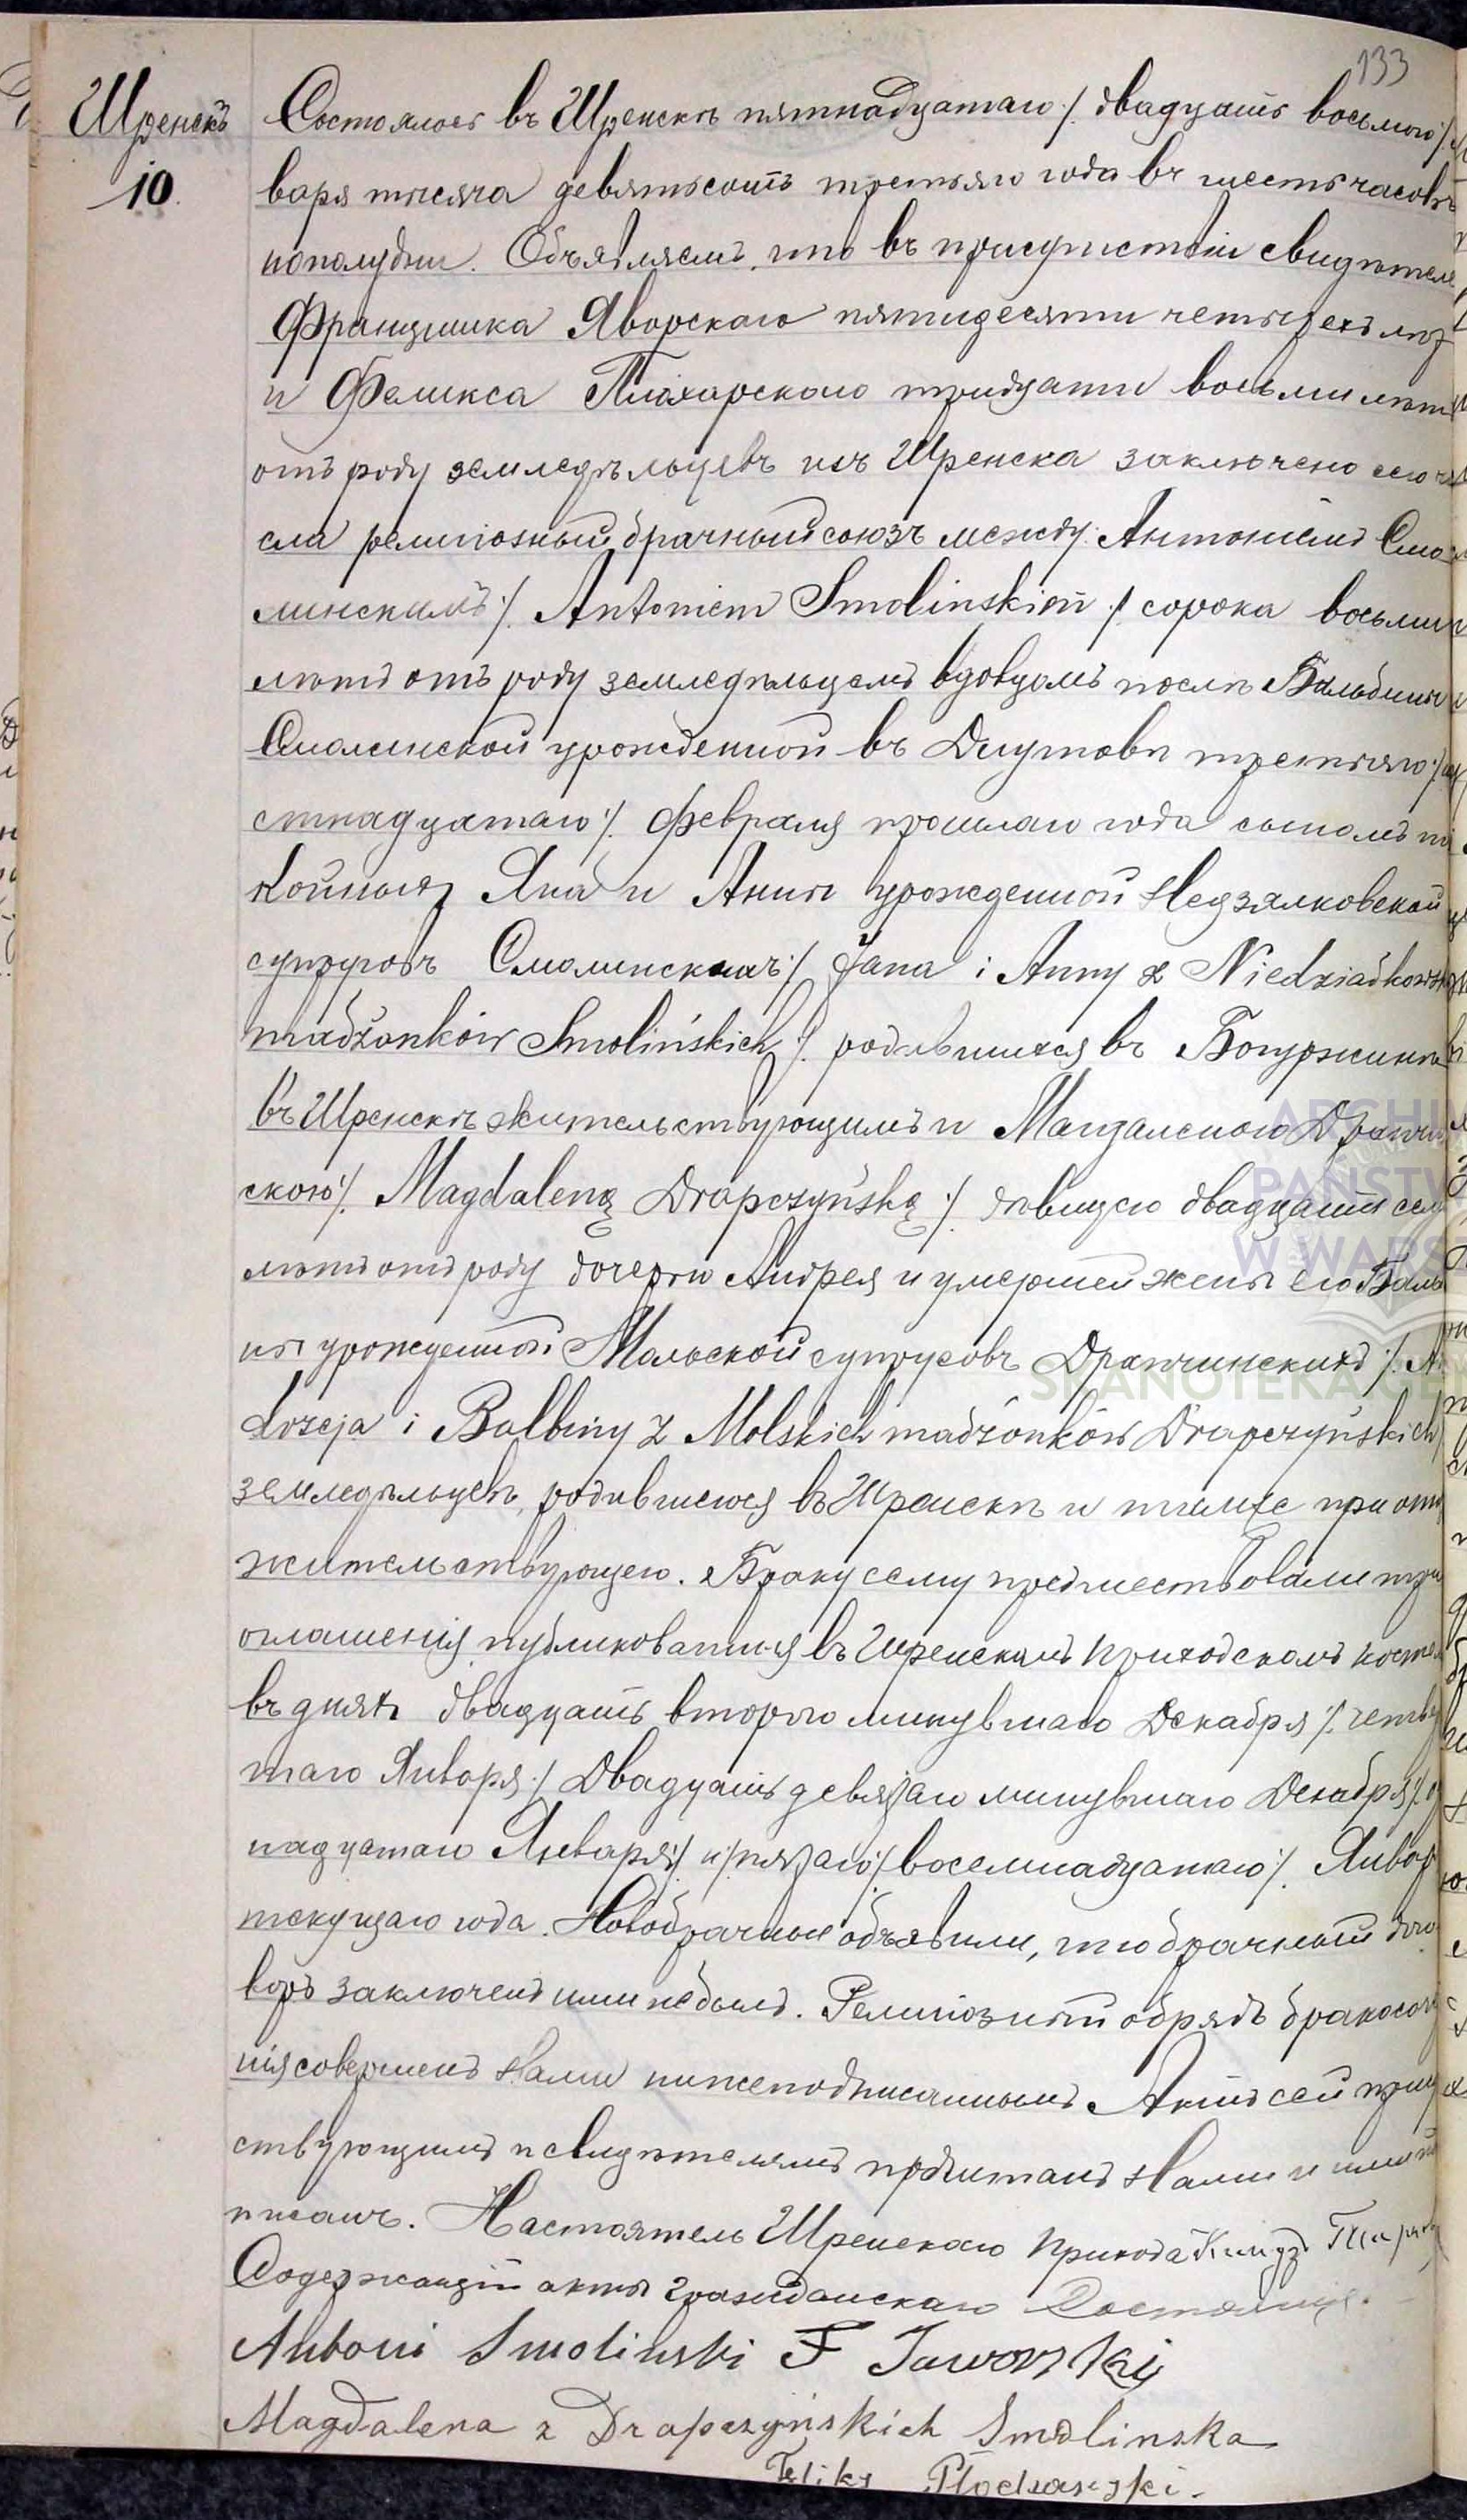 133
Шренскъ
10.
Состоялось въ Шренскѣ пятнадцатаго /. двадцать восьмого /.
варя тысяча девятьсотъ третьяго года въ шесть часовъ
пополудни. Объявляемъ, что въ присутствіи свидѣтеле
Францишка Яворскаго пятидесяти четырехъ лѣт
и Феликса Плохарскаго тридцати восьми лѣтъ
отъ роду земледѣльцевъ изъ Шренска заключено сего чи
сла религіозный брачный союзъ между Антоніемъ Смо
линскимъ /. Antoniem Smolinskim /. сорока восьми
лѣтъ отъ роду земледѣльцемъ вдовцомъ послѣ Бальбины
Смолинской урожденной въ Длутовѣ третьяго /. ше
стнадцатаго /. февраля прошлаго года сыномъ по
койныхъ Яна и Анны урожденной Недзялковской
супруговъ Смолинскихъ /. Jana i Anny z Niedziałkows
małżonków Smolińskich /. родившимся въ Богуржинѣ
въ Шренскѣ жительствующимъ и Магдаленою Драпчин
скою /. Magdaleną Drapczyńską /. дѣвицею двадцати сем
лѣтъ отъ роду дочерью Андрея и умершей жены его Баль
ны урожденной Мольской супруговъ Драпчинскихъ /. An
drzeja i Balbiny z Molskich małżonków Drapczyńskich
земледѣльцевъ, родившеюся въ Шренскѣ и тамже при отц
жительствующею. Браку сему предшествовали три
оглашенія публикованныя въ Шренскомъ приходскомъ косте
въ дняхъ двадцать второго минувшаго Декабря /. четвер
таго Января /. Двадцать девятаго минувшаго Декабря /. о
надцатаго Января /. и пятаго /. восемнадцатаго /. Январ
текущаго года. Новобрачные объявили, что брачный дого
воръ заключенъ ими не былъ. Религіозный обрядъ бракосоч
нія совершенъ Нами нижеподписаннымъ. Актъ сей прису
ствующимъ и свидѣтелямъ прочитанъ Нами и ими по
писанъ. Настоятель Шренскаго Прихода Ксендзъ
Содержащій акты гражданскаго Состоянія.
Antoni Smolinski F Jaworski
Magdalena z Drapczyńskich Smolinska
Feliks Płocharski.
ARCHI
PAŃSTW
W WARSZ
SKANOTEKA GEN